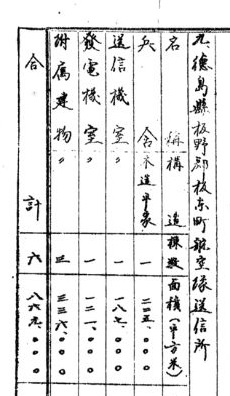 九、德島縣板野郡板東町航空隊送信所
名稱 構造 棟数 面積(平方米)
兵舍 木造平家 一 二二五、〇〇〇
送信機室 〃 一 一八七、〇〇〇
發電機室 〃 一 一二一、〇〇〇
附属建物 〃 三 三三六、〇〇〇
合計 六 八六九、〇〇〇